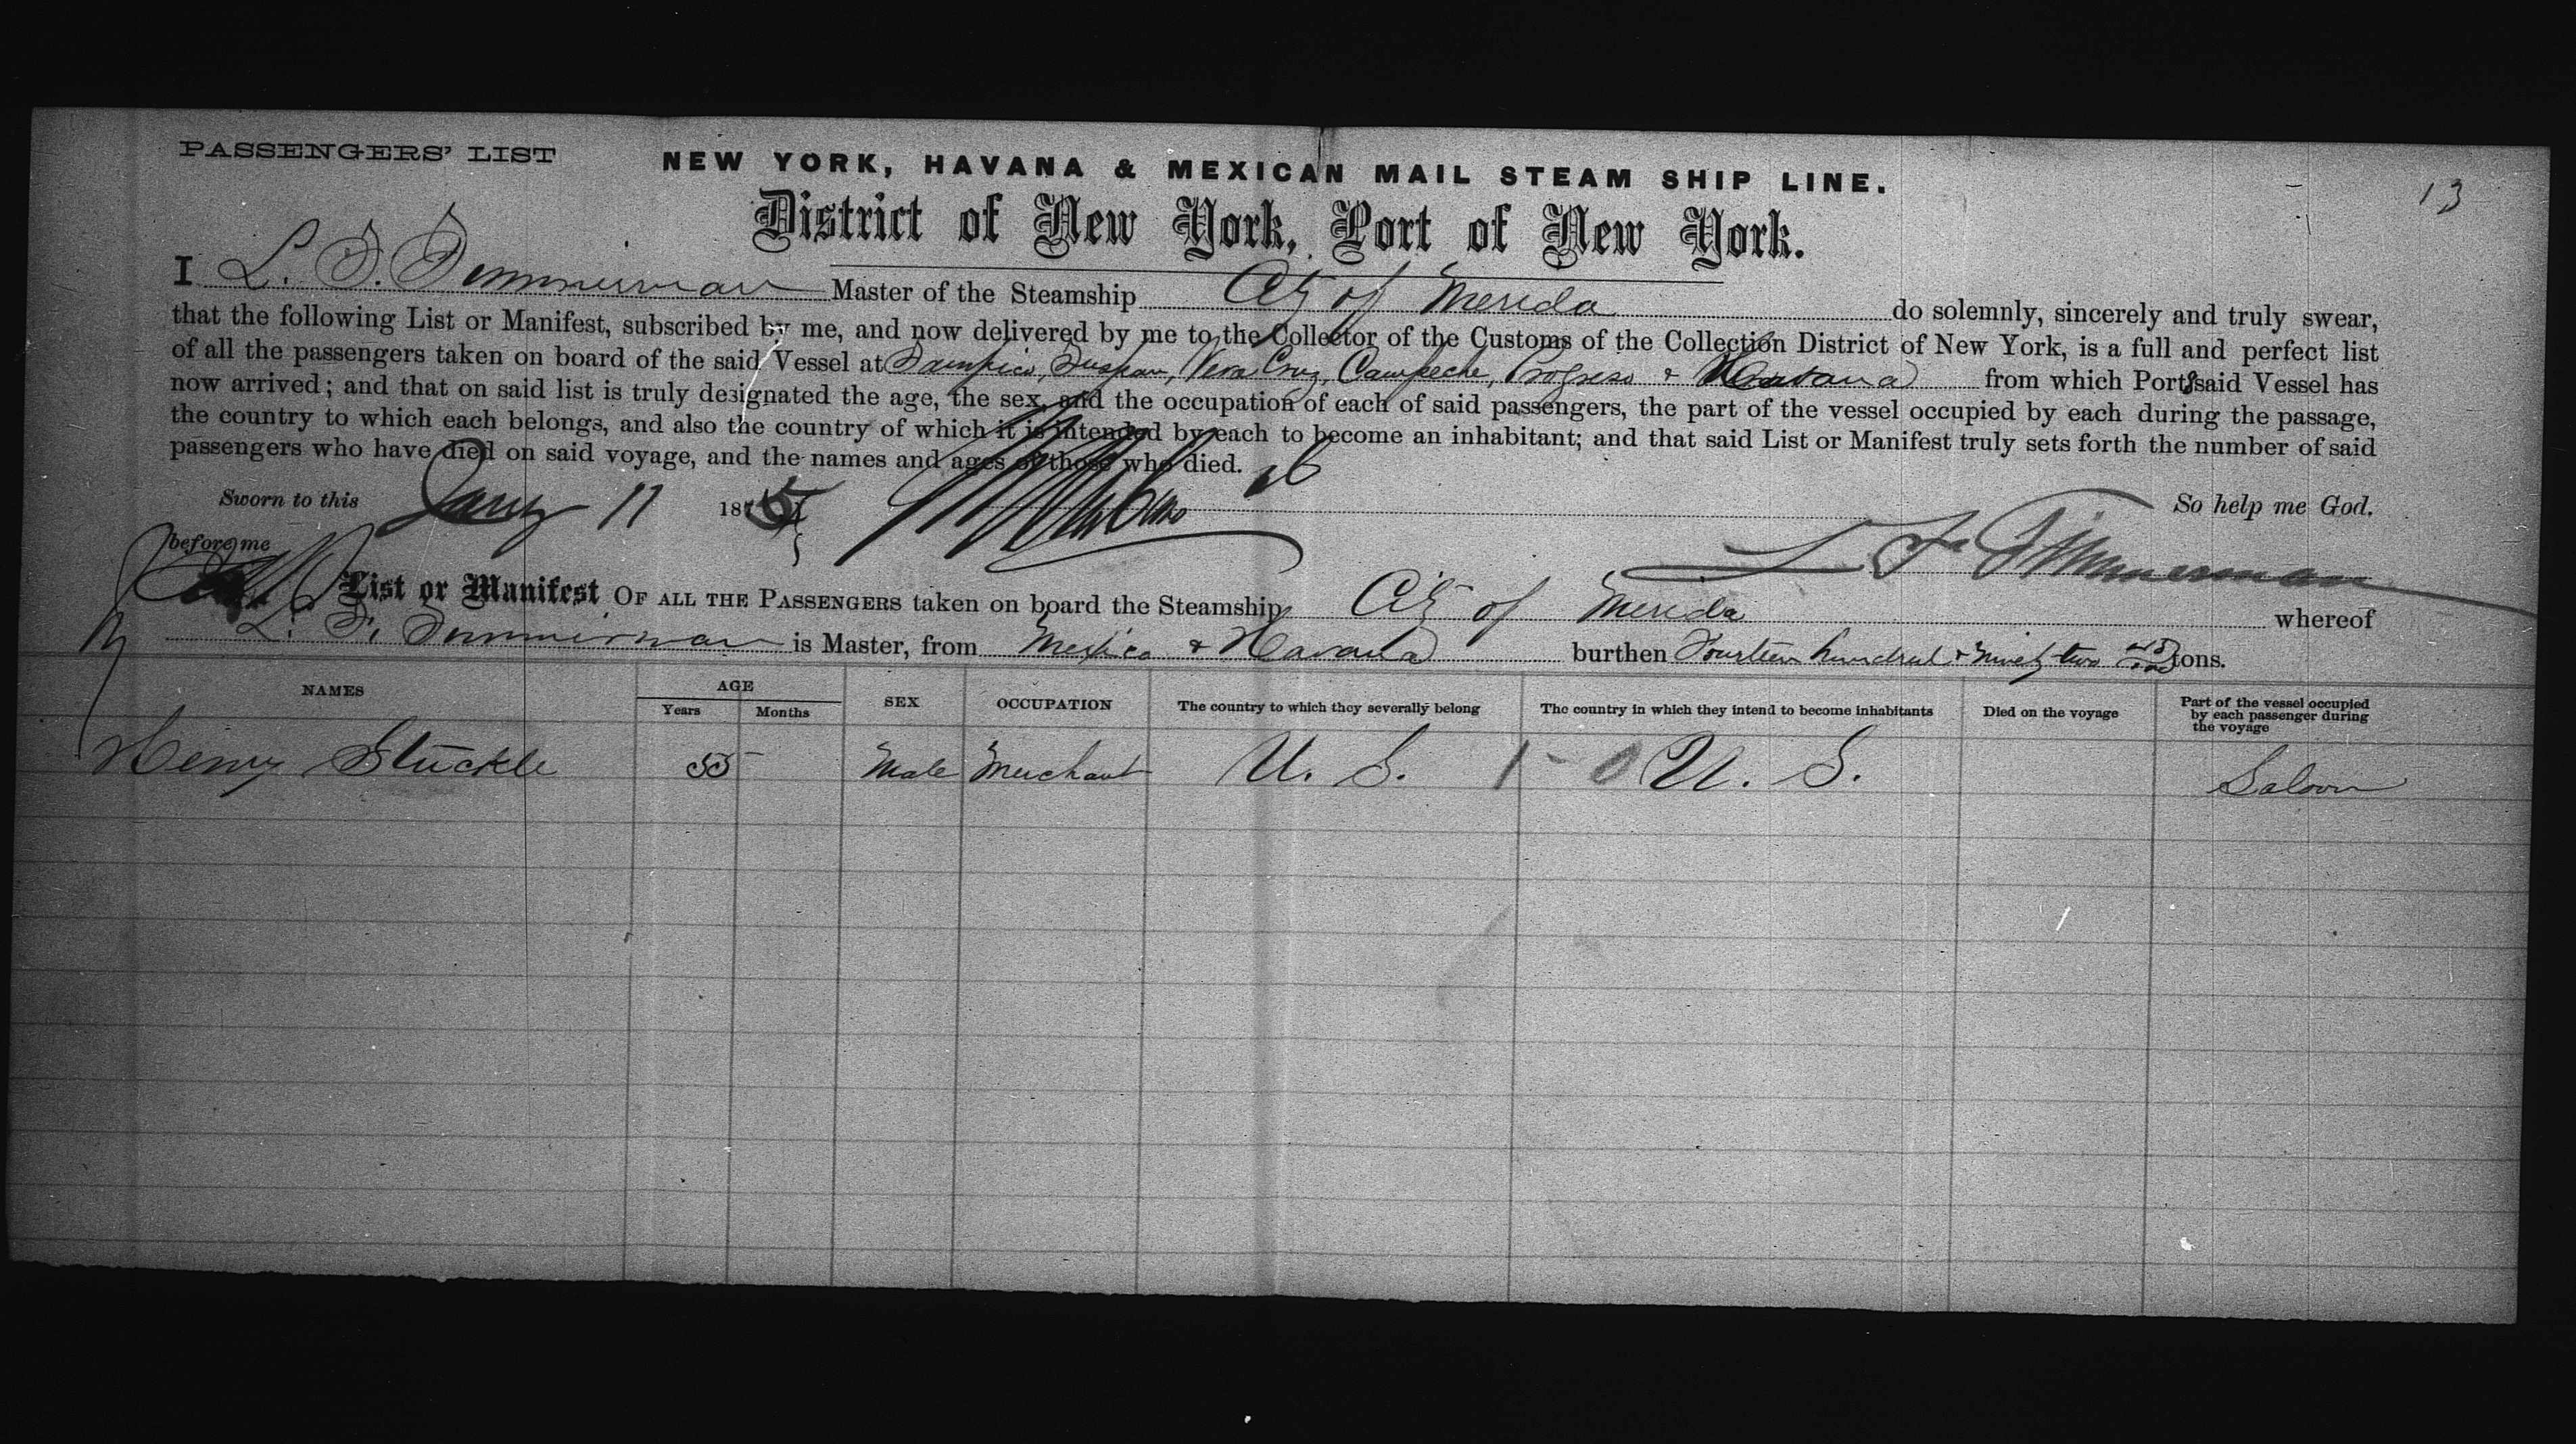 PASSENGERS' LIST
NEW YORK, HAVANA & MEXICAN MAIL STEAM SHIP LINE.
13
District of New York, Port of New York.
I L. F. Timmerman Master of the Steamship City of Merida do solemnly, sincerely and truly swear,
that the following List or Manifest, subscribed by me, and now delivered by me to the Collector of the Customs of the Collection District of New York, is a full and perfect list
of all the passengers taken on board of the said Vessel at Tampico, Tuspan, Vera Cruz, Campeche, Progreso & Havana from which Ports said Vessel has
now arrived; and that on said list is truly designated the age, the sex, and the occupation of each of said passengers, the part of the vessel occupied by each during the passage,
the country to which each belongs, and also the country of which it is intended by each to become an inhabitant; and that said List or Manifest truly sets forth the number of said
passengers who have died on said voyage, and the names and ages of those who died.
Sworn to this Jany 11 187 So help me God.
before me L. F. Timmerman
List or Manifest OF ALL THE PASSENGERS taken on board the Steamship City of Merida whereof
L. F. Timmerman is Master, from Mexico & Havana burthen Fourteen hundred & ninety two tons.
NAMES AGE SEX OCCUPATION The country to which they severally belong The country in which they intend to become inhabitants Died on the voyage Part of the vessel occupied by each passenger during the voyage
Years Months
Henry Stuckle 55 Male Merchant U. S. 1 - 0 U. S. Saloon